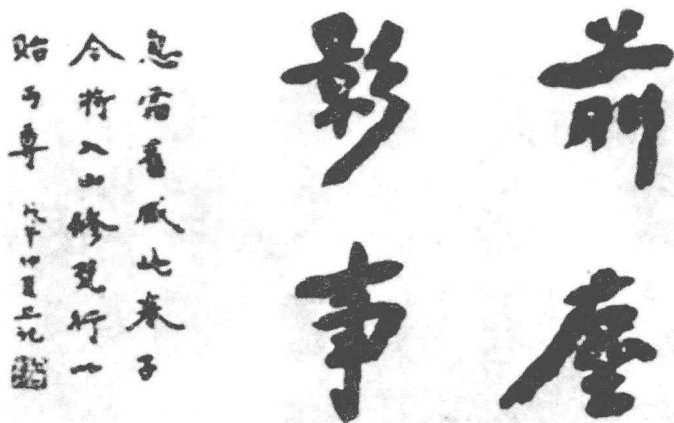 前塵
影事
息霜舊藏此卷子
今將入山修梵行以
貽丏尊 戊午仲夏記